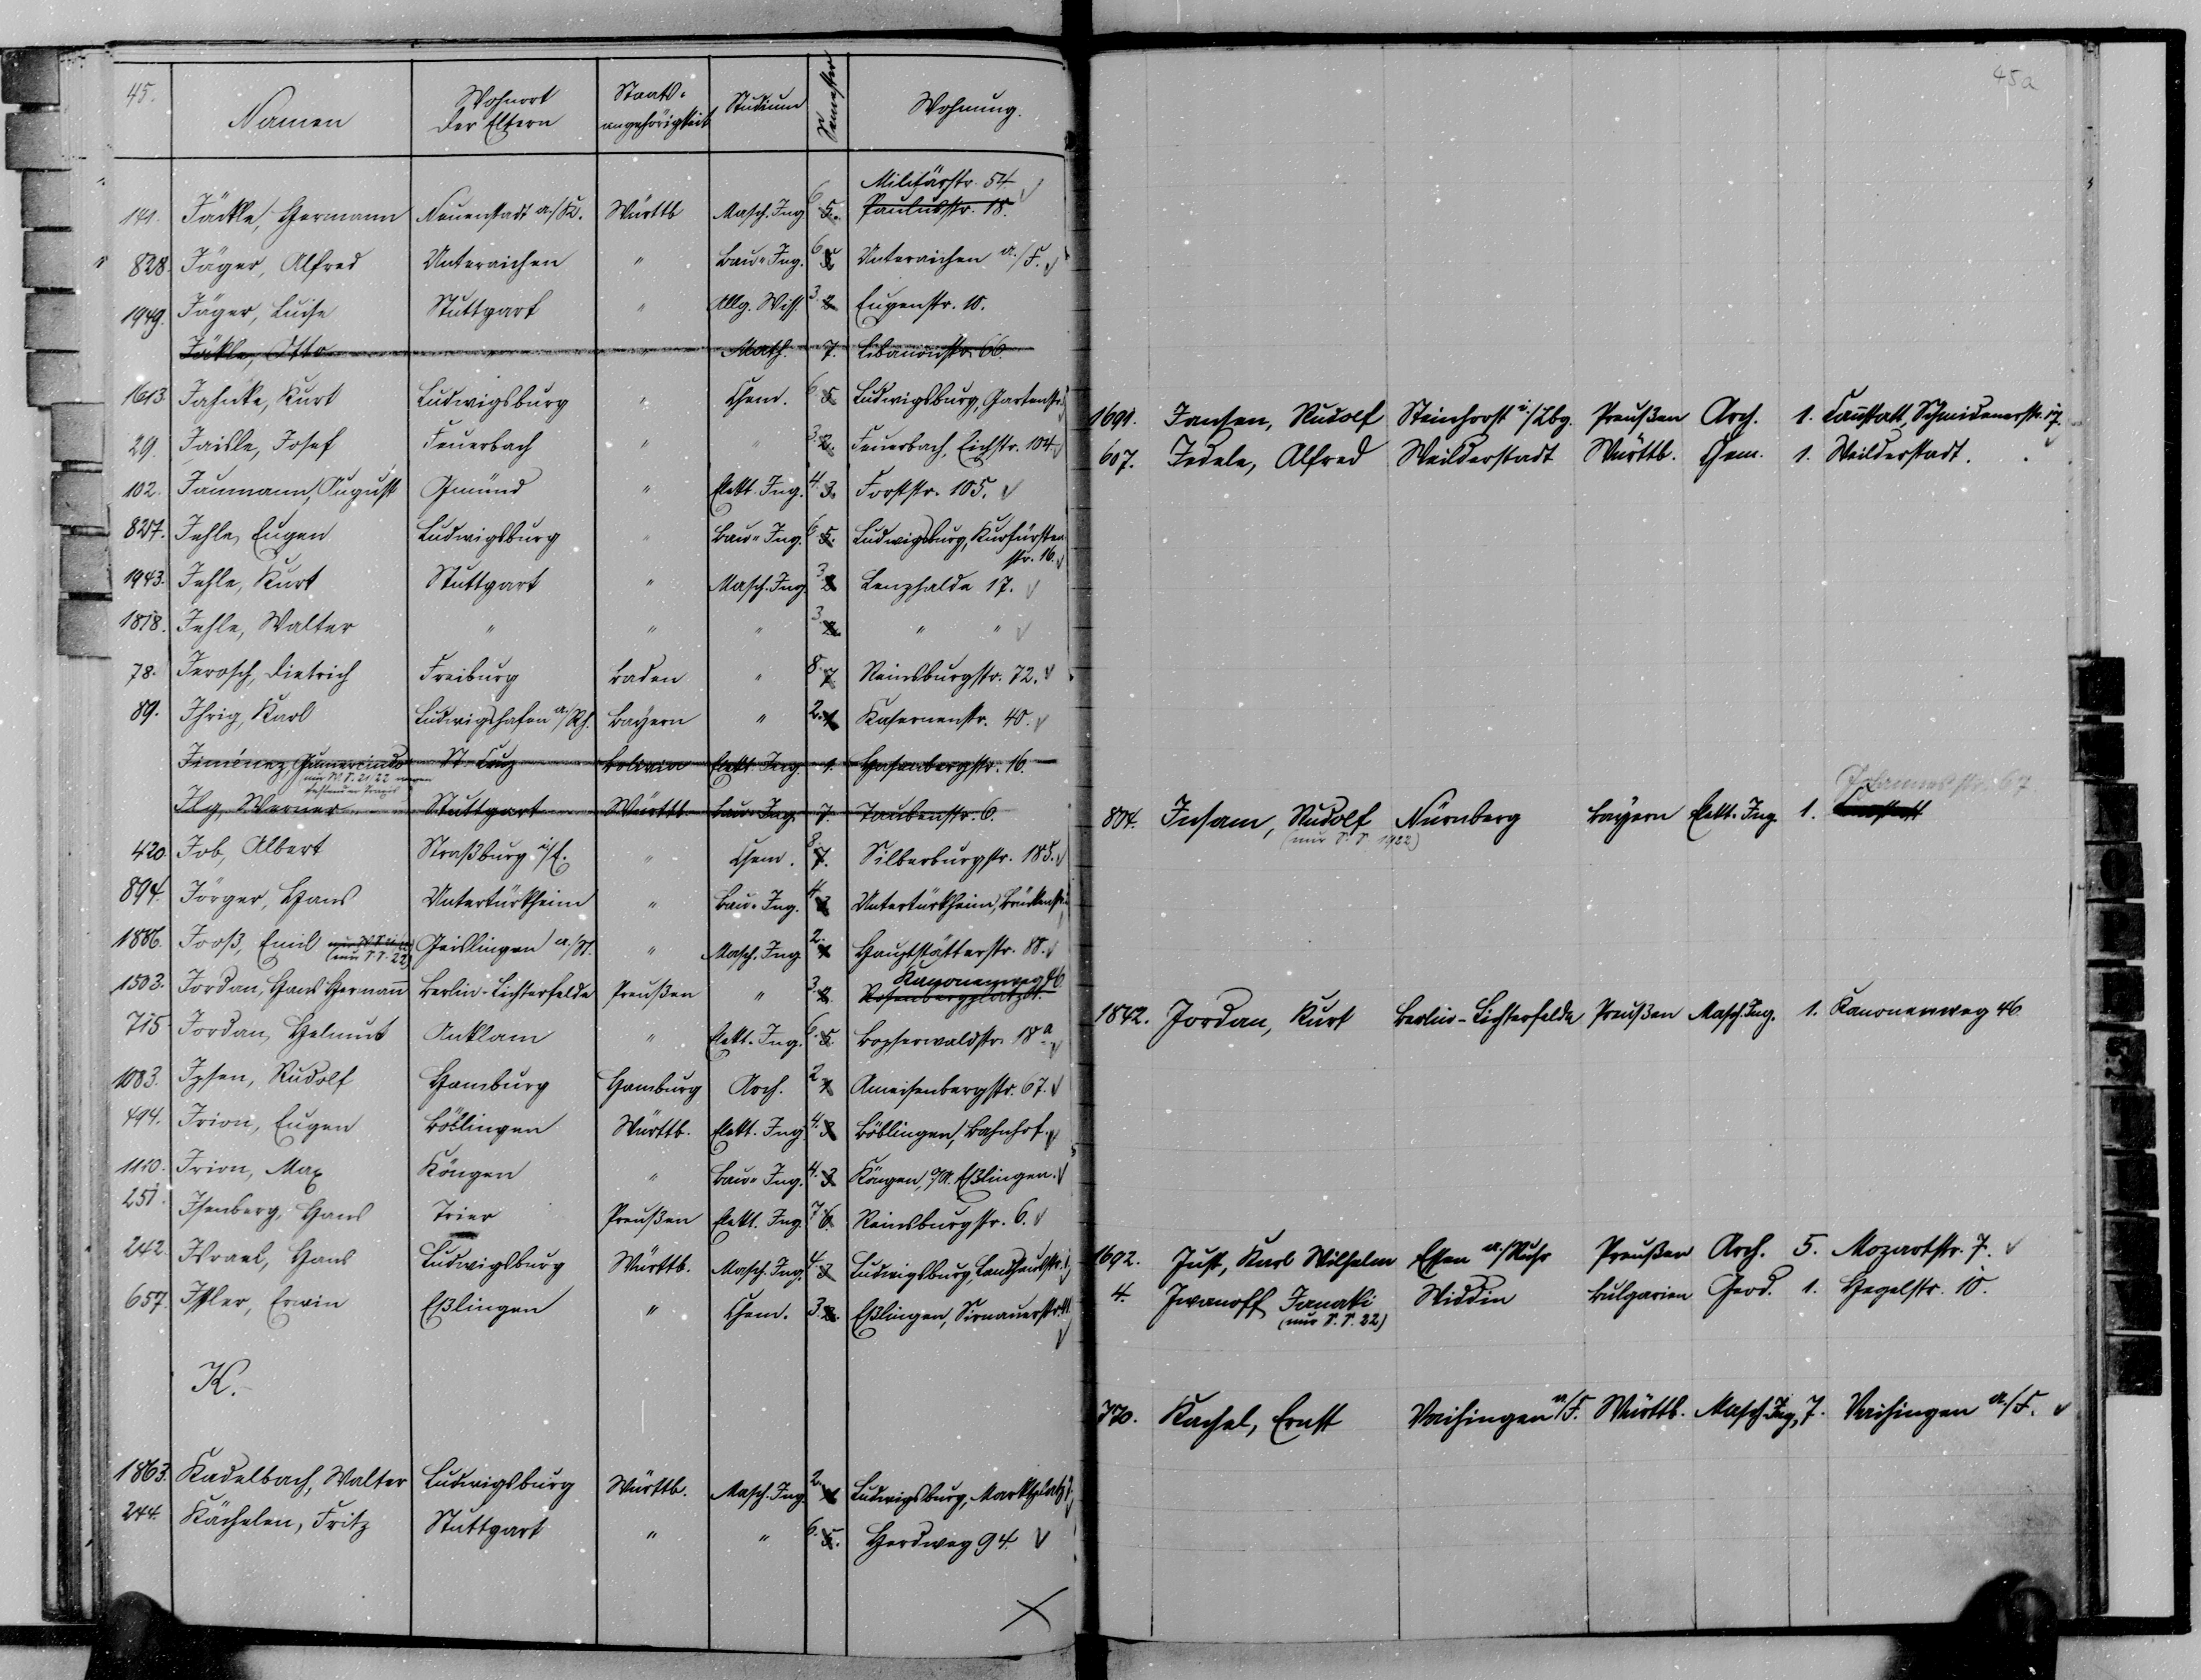 45.
Namen Wohnort der Eltern Staats-angehörigkeit Studium Semester Wohnung.
Militärstr. 54
141. Jäckle, Hermann Neuenstadt a./K. Württb Masch. Ing 6 5. Paulusstr. 18.
828. Jäger, Alfred Unteraichen " Bau-Ing. 6 5 Unteraichen a./F.
1949. Jäger, Luise Stuttgart " Allg. Wiss. 3. 2 Eugenstr. 10.
Jäkle, Otto " " Math. 7. Libanonstr. 66.
1613. Jahnke, Kurt Ludwigsburg " Chem. 6. 5 Ludwigsburg, Gartenstr.
29. Jaisle, Josef Feuerbach " " 3. 2. Feuerbach, Eichstr. 104
102. Jaumann, August Gmünd " Elekt. Ing. 4. 3. Forststr. 105.
827. Jehle, Eugen Ludwigsburg " Bau-Ing. 6. 5. Ludwigsburg, Kurfürsten
str. 16.
1943. Jehle, Kurt Stuttgart " Masch. Ing. 3. 2 Lenzhalde 17.
1878. Jehle, Walter " " " 3. 2. " "
78. Jerosch, Dietrich Freiburg Baden " 8. 7 Reinsburgstr. 72.
89. Ihrig, Karl Ludwigshafen a./Rh. Bayern " 2. 1 Kasernenstr. 40.
Jiménez, Gumercindo St. Cruz Bolivia Elekt. Ing. 1. Hasenbergstr. 16.
nur W. S. 21/22
Ilg, Werner Stuttgart Württb. Bau-Ing. 7. Taubenstr. 6.
420. Job, Albert Straßburg i/E. " Chem. 8. 7. Silberburgstr. 185.
894. Jörger, Hans Untertürkheim " Bau-Ing. 4. 3 Untertürkheim, Brückenstr.
1886. Jooß, Emil Geislingen a./St. " Masch. Ing 2. 1 Hauptstätterstr. 88.
(nur S. S. 22)
Kanonenweg 46
1503. Jordan, Hans Hermann Berlin-Lichterfelde Preußen " 3. 2. Rosenbergplatz
715. Jordan, Helmut Anklam " Elekt.-Ing. 6. 5. Bopserwaldstr. 18a
1083. Ipsen, Rudolf Hamburg Hamburg Arch. 2. 1 Ameisenbergstr. 67.
494. Irion, Eugen Böblingen Württb. Elekt. Ing 4. 3 Böblingen, Bahnhof.
1120. Irion, Max Köngen " Bau-Ing. 4. 3 Köngen, O/A. Eßlingen.
251. Isenberg, Hans Trier Preußen Elekt. Ing. 7. 6. Reinsburgstr. 6.
242. Israel, Hans Ludwigsburg Württb. Masch. Ing. 4. 3 Ludwigsburg,
657. Ißler, Erwin Eßlingen " Chem. 3. 2. Eßlingen, Sirnauerstr.
K.
1863. Kadelbach, Walter Ludwigsburg Württb. Masch. Ing. 2. 1 Ludwigsburg, Marktplatz
244. Kächelen, Fritz Stuttgart " " 6. 5. Herdweg 94.
45a
1691. Jansen, Rudolf Steinhorst i./Lbg. Preußen Arch. 1. Cannstatt, Schmidenerstr. 17.
607. Jedele, Alfred Weilderstadt Württb. Chem. 1. Weilderstadt.
Johannesstr. 67.
804. Insam, Rudolf Nürnberg Bayern Elekt. Ing. 1.
(nur S. S. 1922)
1842. Jordan, Kurt Berlin-Lichterfelde Preußen Masch. Ing. 1. Kanonenweg 46
1692. Just, Karl Wilhelm Essen a./Ruhr Preußen Arch. 5. Mozartstr. 7.
4. Iwanoff, Janaki Widdin Bulgarien Geod. 1. Hegelstr. 10.
(nur S. S. 22)
770. Kachel, Ernst Vaihingen a/F. Württb. Masch. Ing, 7. Vaihingen a./F.